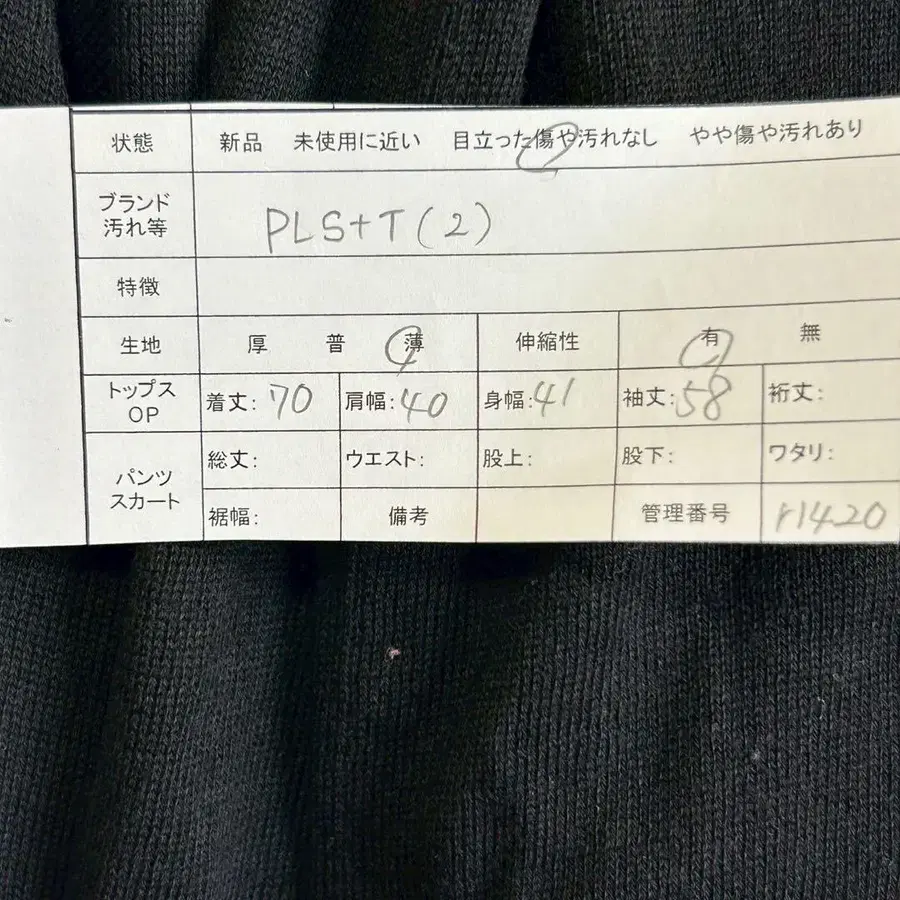 状態 新品 未使用に近い 目立った傷や汚れなし やや傷や汚れあり
ブランド
汚れ等 PLS+T(2)
特徴
生地 厚 普 薄 伸縮性 有 無
トップス
OP 着丈: 70 肩幅: 40 身幅: 41 袖丈: 58 裄丈:
パンツ
スカート 総丈: ウエスト: 股上: 股下: ワタリ:
裾幅: 備考 管理番号 r1420